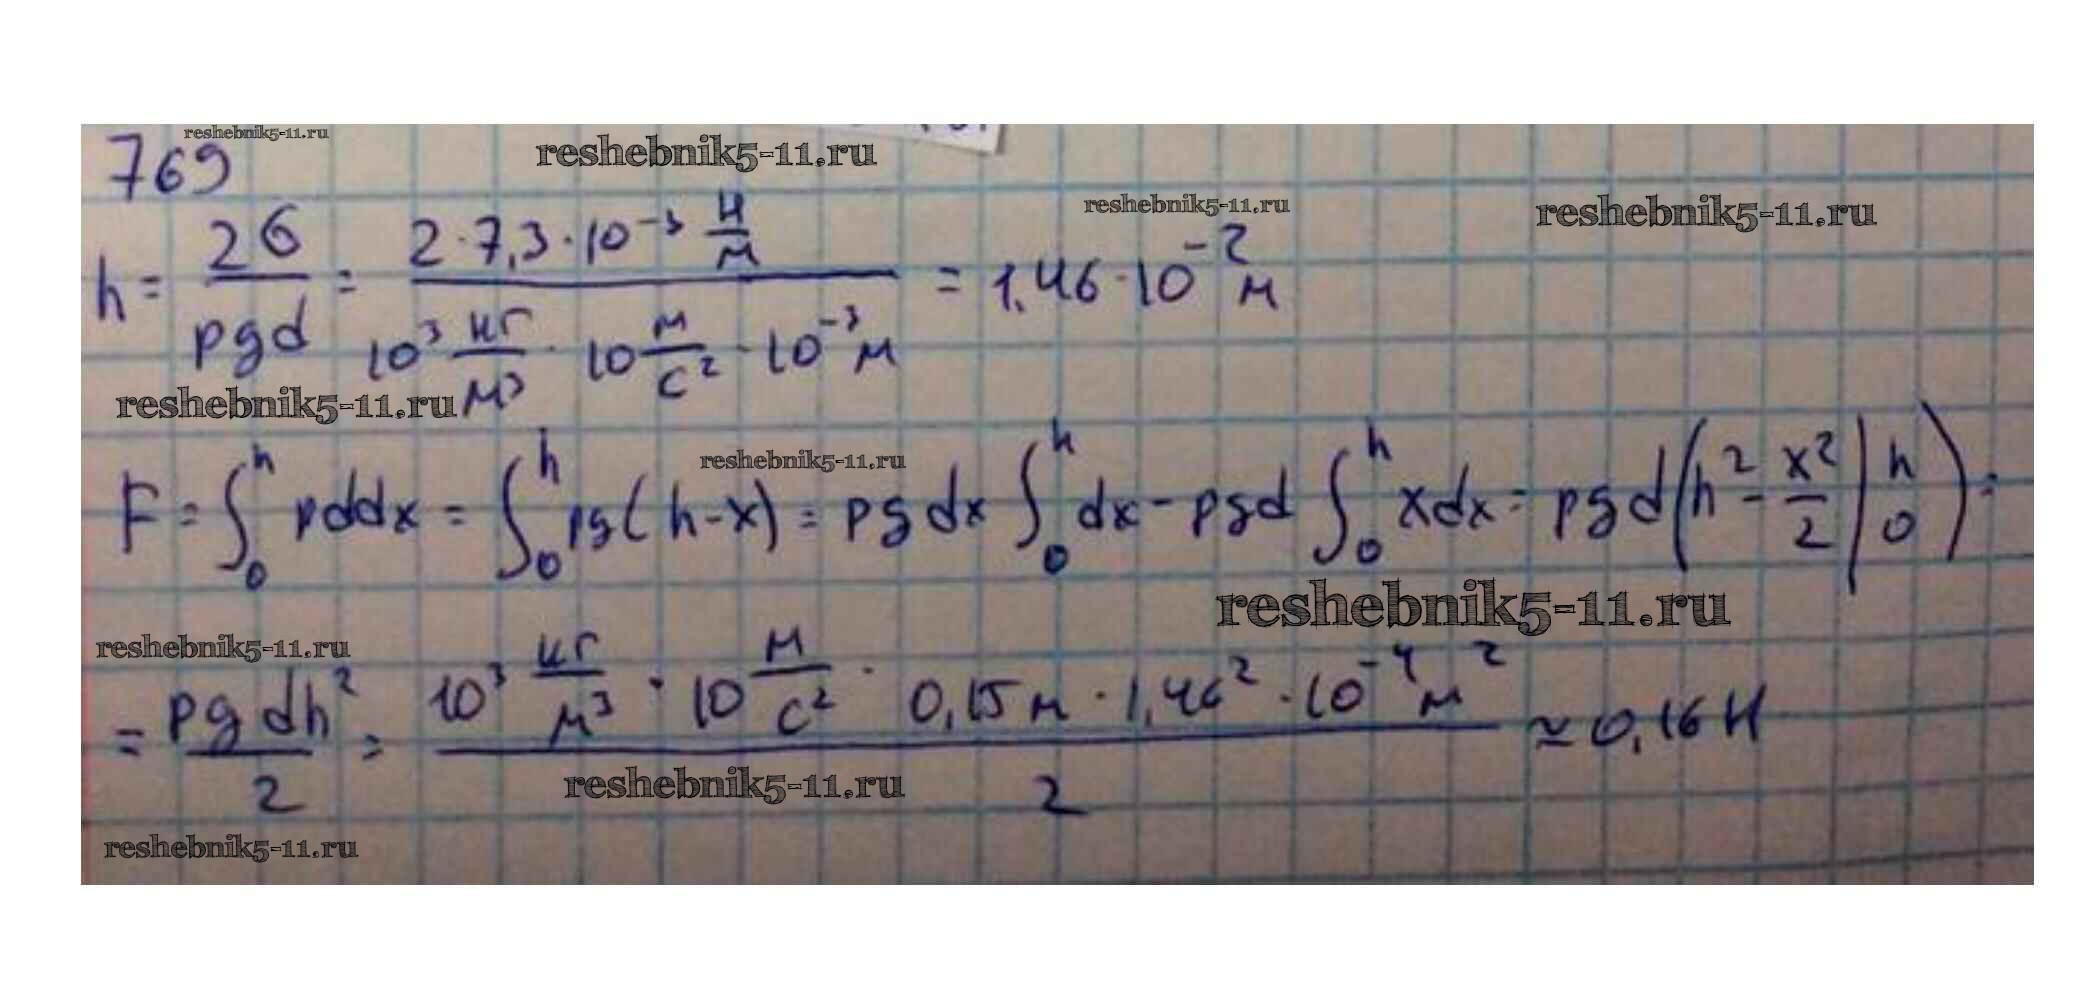 reshebnik5-11.ru
769 reshebnik5-11.ru
reshebnik5-11.ru reshebnik5-11.ru
h = 2б/ρgd = (2·7,3·10⁻³ Н/м)/(10³ кг/м³ · 10 м/с² · 10⁻³ м) = 1,46·10⁻² м
reshebnik5-11.ru
reshebnik5-11.ru
F = ∫₀ʰ pddx = ∫₀ʰ ρg(h-x) = ρgdx ∫₀ʰ dx - ρgd ∫₀ʰ xdx = ρgd(h² - x²/2 |ʰ₀) =
reshebnik5-11.ru
reshebnik5-11.ru
= ρgdh²/2 = (10³ кг/м³ · 10 м/с² · 0,15м · 1,46² · 10⁻⁴ м²)/2 ≈ 0,16Н
reshebnik5-11.ru
reshebnik5-11.ru